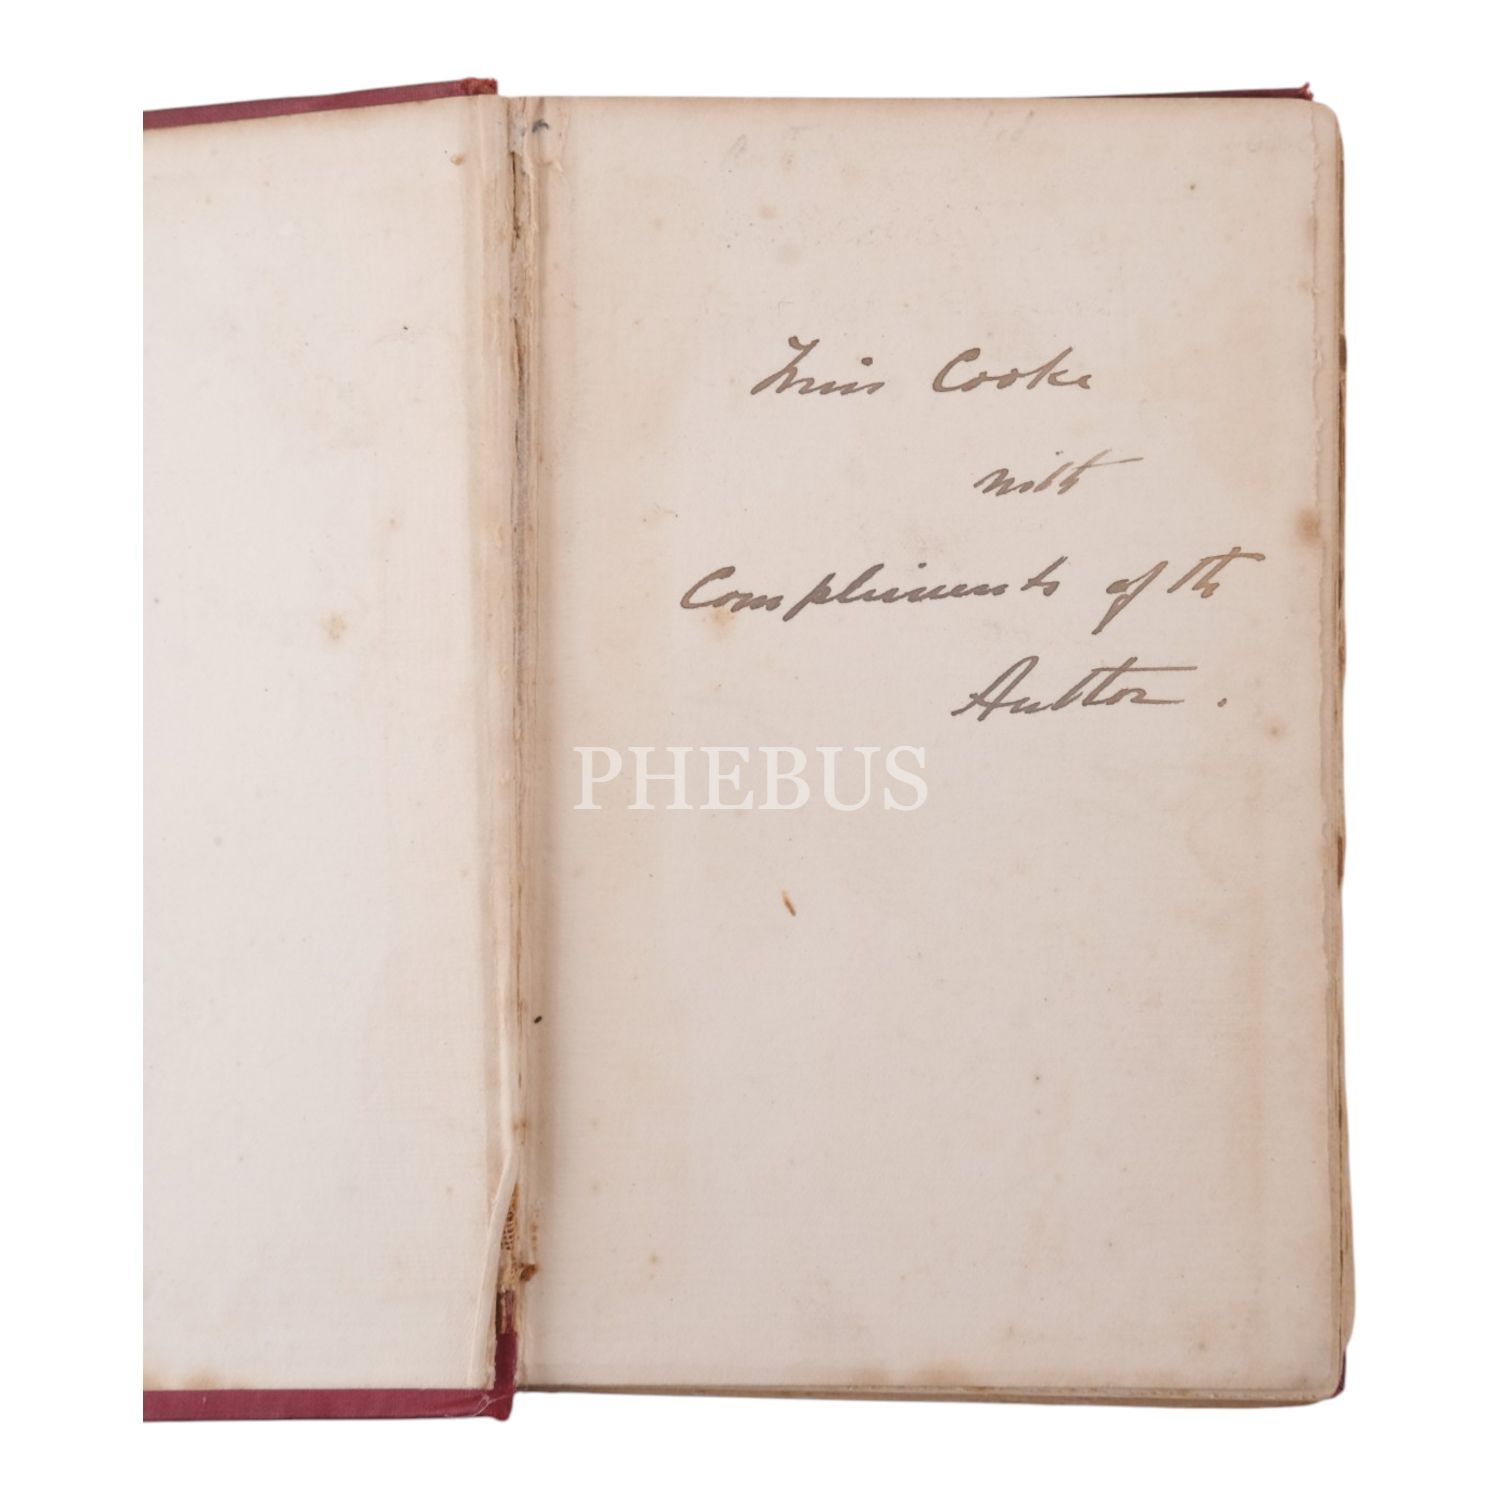 Miss Cooke
with
Compliments of the
Author.
PHEBUS